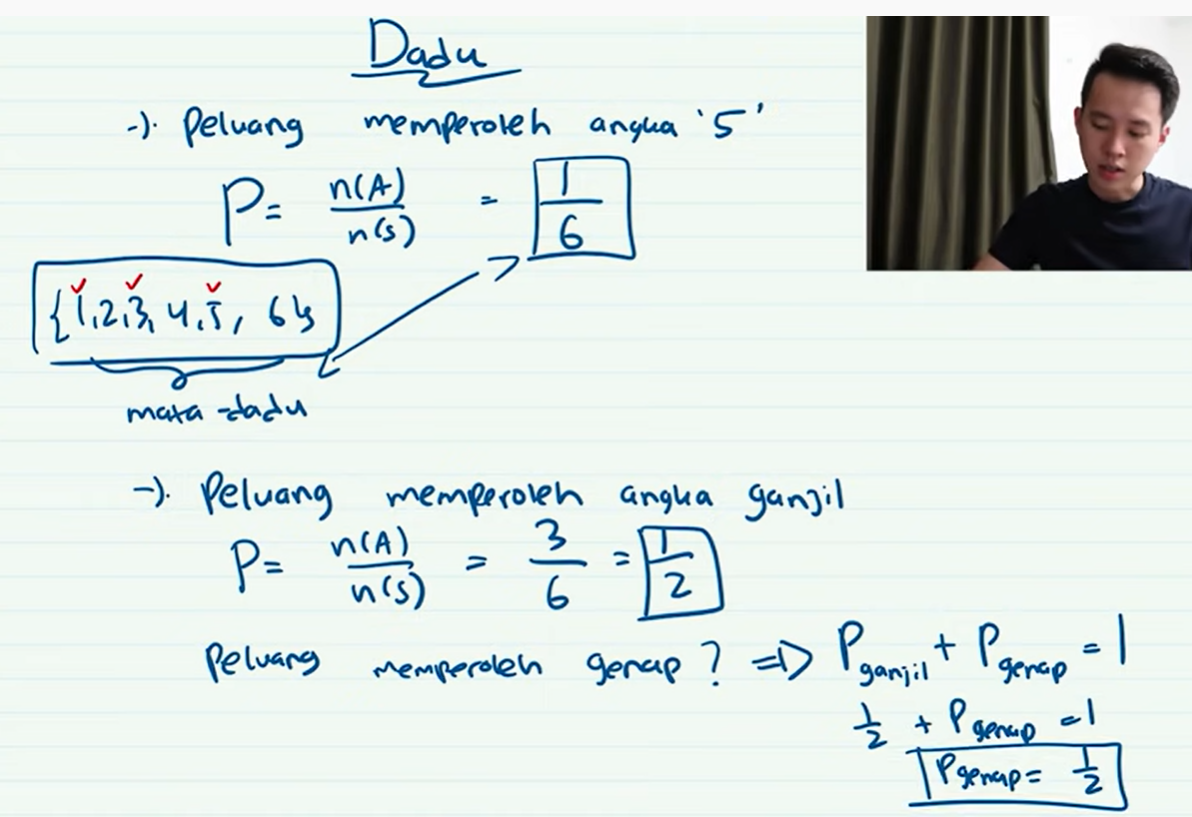 Dadu
-). Peluang memperoleh angka '5'
P = n(A)/n(S) = 1/6
{1,2,3,4,5, 6}
mata dadu
-). Peluang memperoleh angka ganjil
P = n(A)/n(S) = 3/6 = 1/2
Peluang memperoleh genap? => P ganjil + P genap = 1
1/2 + P genap = 1
P genap = 1/2